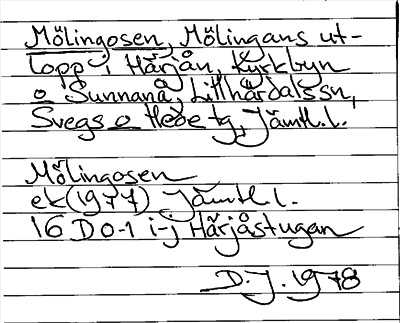 Mölingosen, Mölingans ut-
lopp i Härjån, Kyrkbyn
o Sunnanå, Lillhärdals sn,
Svegs o Hede tg, Jämtl. l.
Mölingosen
ek (1977) Jämtl l.
16 D 0-1 i-j Härjåstugan
D. J. 1978